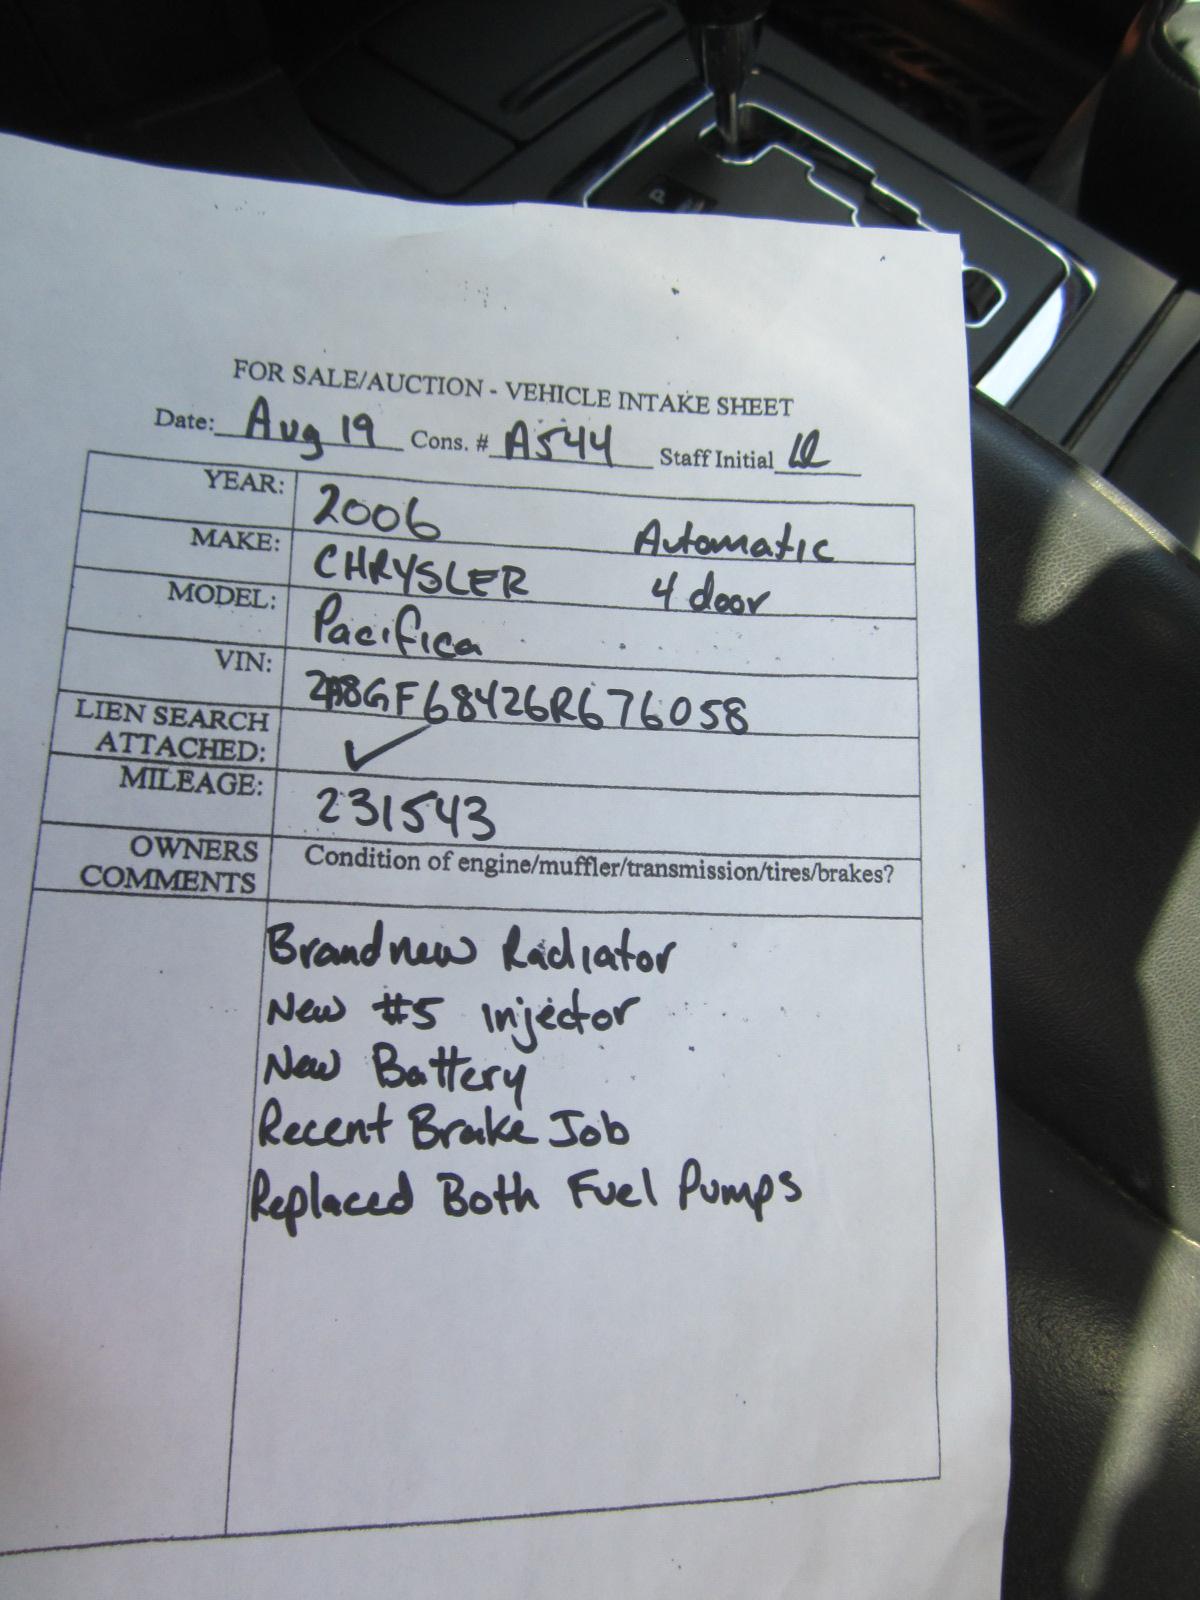 P
FOR SALE/AUCTION - VEHICLE INTAKE SHEET
Date: Aug 19 Cons. # A544 Staff Initial
YEAR: 2006 Automatic
MAKE: CHRYSLER 4 door
MODEL: Pacifica
VIN: 2A8GF68426R676058
LIEN SEARCH
ATTACHED: ✓
MILEAGE: 231543
OWNERS
COMMENTS
Condition of engine/muffler/transmission/tires/brakes?
Brand new Radiator
New #5 injector
New Battery
Recent Brake Job
Replaced Both Fuel Pumps